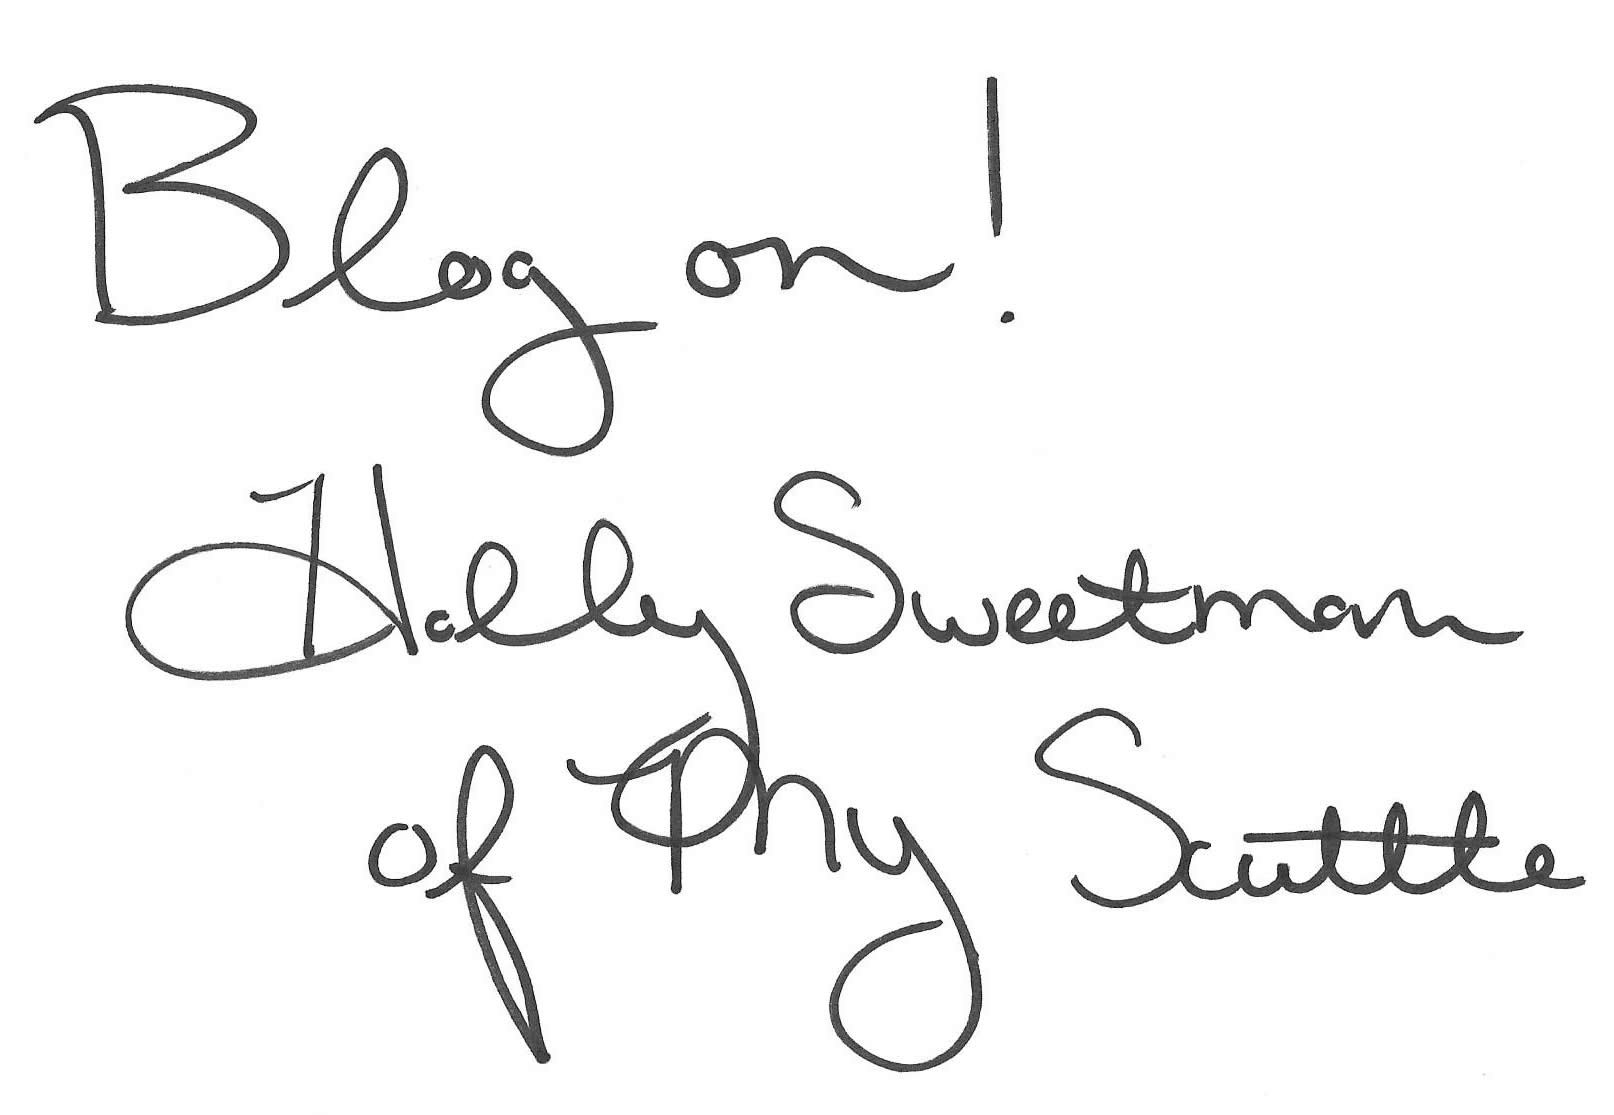 Blog on!
Holly Sweetman
of Thy Scuttle